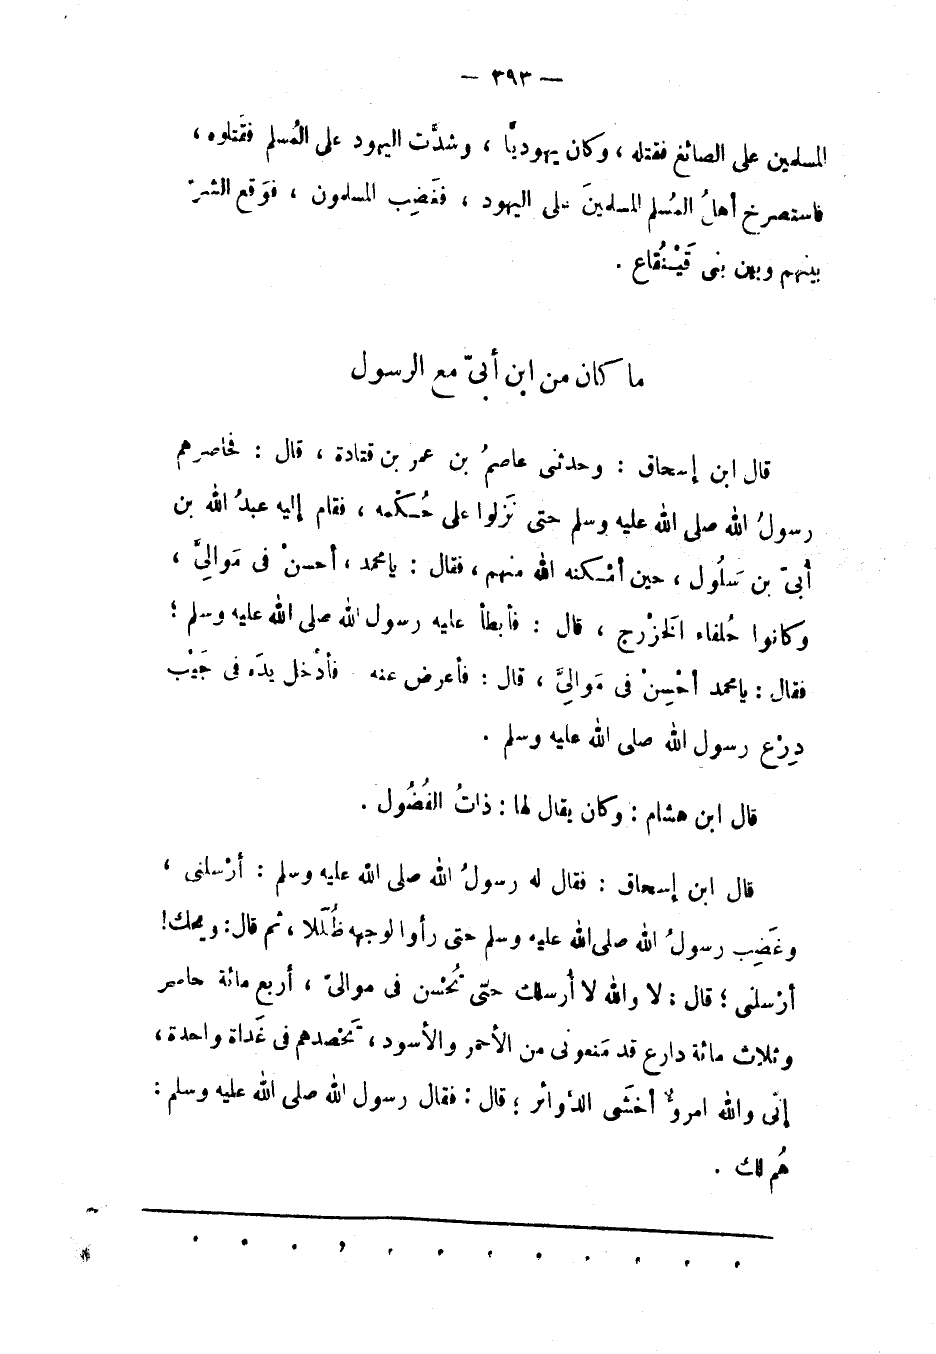 — ٣٩٣ —
المسلمين على الصائغ فقتله ، وكان يهوديًّا ، وشدَّت اليهود على المُسلم فقَتلوه ،
فاستصرخ أهلُ المُسلم المسلمينَ على اليهود ، فغَضِب المسلمون ، فوَقع الشرّ
بينهم وبين بنى قَيْنُقاع .
ما كان من ابن أبىّ مع الرسول
قال ابن إسحاق : وحدثنى عاصمُ بن عمر بن قتادة ، قال : فحاصرهم
رسولُ الله صلى الله عليه وسلم حتى نَزلوا على حُكْمه ، فقام إليه عبدُ الله بن
أُبىّ بن سَلُول ، حين أمْكنه الله منهم ، فقال : يامحمد ، أحسنْ فى مَوالِيَّ ،
وكانوا حُلفاء الخَزْرج ، قال : فأبطأ عليه رسول الله صلى الله عليه وسلم ؛
فقال : يامحمد أحْسِنْ فى مَوالِيَّ ، قال : فأعرض عنه فأدْخل يدَه فى جَيْب
دِرْع رسول الله صلى الله عليه وسلم .
قال ابن هشام : وكان يقال لها : ذاتُ الفُضُول .
قال ابن إسحاق : فقال له رسولُ الله صلى الله عليه وسلم : أرْسلنى ،
وغَضِب رسولُ الله صلى الله عليه وسلم حتى رأوا لوجهه ظُلَلا ، ثم قال : ويحك!
أرْسلنى ؛ قال : لا والله لا أُرسلك حتّى تُحْسن فى موالىّ ، أربع مائة حاسر
وثلاث مائة دارع قد مَنعونى من الأحمر والأسود ، تَحْصدهم فى غَداة واحدة ،
إنّى والله امروٌ أخشَى الدَّوائر ؛ قال : فقال رسول الله صلى الله عليه وسلم :
هُم لك .